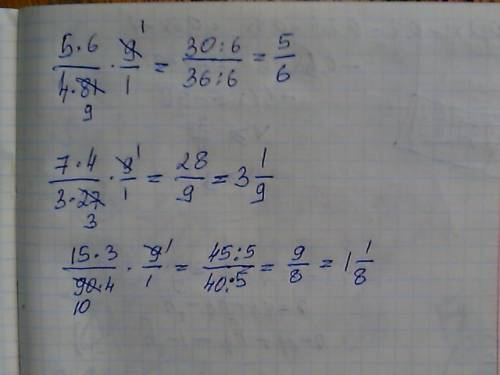 5·6/4·81 9 · 9/1 1 = 30:6/36:6 = 5/6
7·4/3·27 3 · 9/1 1 = 28/9 = 3 1/9
15·3/90·4 10 · 9/1 1 = 45:5/40:5 = 9/8 = 1 1/8